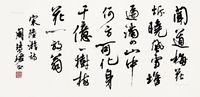 聞道梅花
坼曉風雪堆
遍滿四山中
何方可化身
千億一樹梅
花一放翁
宋陸游詩
周慧珺